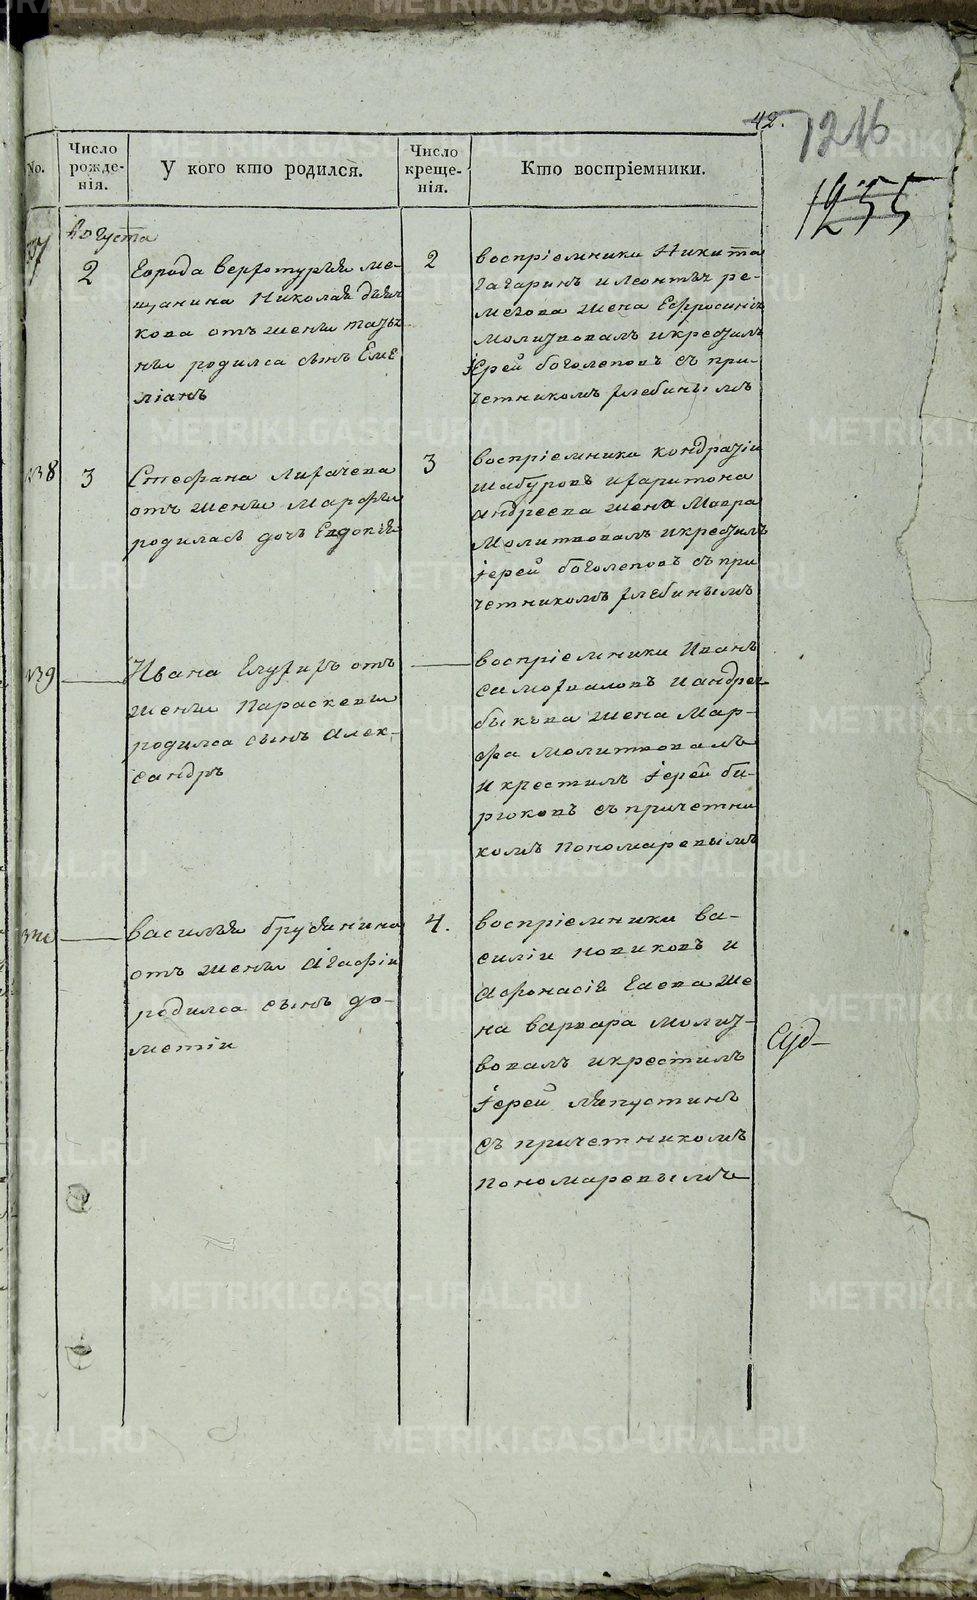 42.
1216
1255
No.
Число рожденія.
У кого кто родился.
Число крещенія.
Кто воспріемники.
Августа
337
2
Города верхотурья ме-
щанина Николая
кова отъ жены татья
ны родился сынъ Еме
ліанъ
2
воспріемники Никита
гагаринъ и леонтья ре-
мезова жена Ефросинія
молитвовалъ и крестилъ
іерей боголеповъ съ при-
четникомъ хлебинымъ
338
3
Стефана лихачева
отъ жены Марфы
родилась дочь Евдокія
3
воспріемники кондратіи
шабуровъ и харитона
андреева жена Мавра
Молитвовалъ и крестилъ
іерей боголеповъ съ при
четникомъ хлебинымъ
339
Ивана отъ
жены Параскевы
родился сынъ Алек-
сандръ
воспріемники Иванъ
самохваловъ и андрея
быкова жена Мар-
фа молитвовалъ
и крестилъ іерей би-
рюковъ съ причетни
комъ пономаревымъ
340
василья брусянина
отъ жены Агафіи
родился сынъ до-
метіи
4.
воспріемники ва-
силіи новиковъ и
Афонасія Еаева же
на варвара молит-
вовалъ и крестилъ
іерей ляпустинъ
съ причетникомъ
пономаревымъ
METRIKI.GASO-URAL.RU